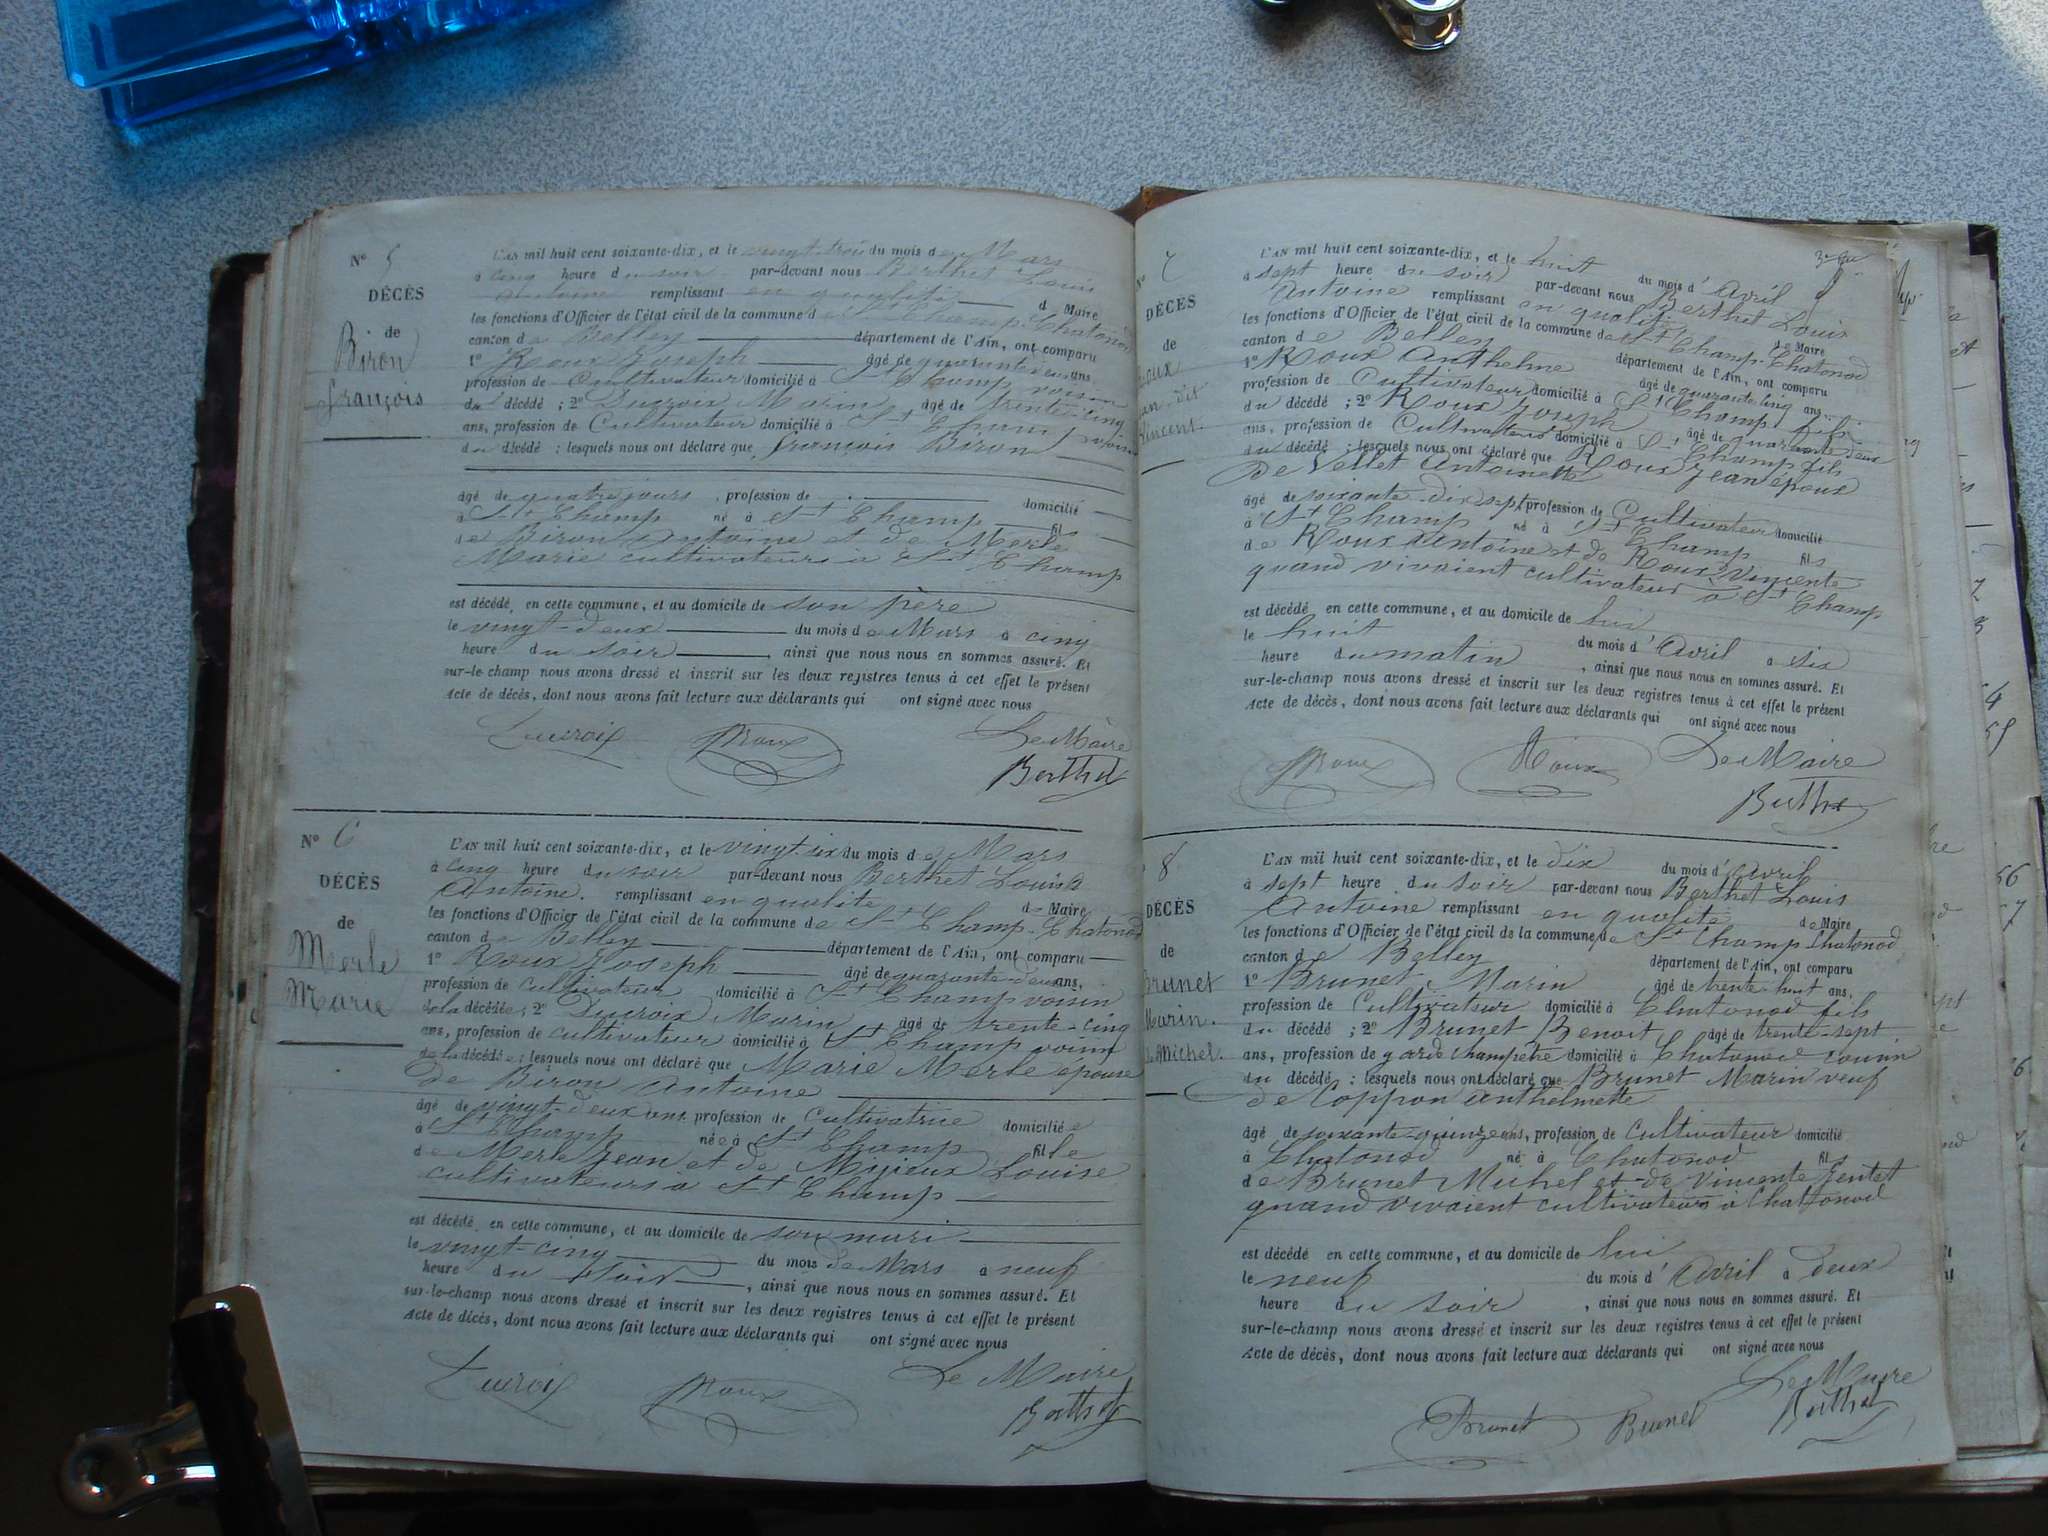 N° 5
DÉCÈS
de
Biron
François
L'AN mil huit cent soixante-dix, et le vingt-trois du mois de Mars
à cinq heure du soir par-devant nous Berthet Louis
Antoine remplissant en qualité d Maire
les fonctions d'Officier de l'état civil de la commune de St Champ-Chatonod
canton de Belley département de l'Ain, ont comparu
1° Roux Joseph âgé de quarante deux ans,
profession de Cultivateur domicilié à St Champ voisin
du décédé ; 2° Ducroix Marin âgé de trente-cinq
ans, profession de Cultivateur domicilié à St Champ voisin
du décédé : lesquels nous ont déclaré que François Biron
âgé de quatre jours , profession de domicilié
à St Champ né à St Champ fils
de Biron Antoine et de Merle
Marie cultivateurs à St Champ
est décédé en cette commune, et au domicile de son père
le vingt-deux du mois de Mars à cinq
heure du soir , ainsi que nous nous en sommes assuré. Et
sur-le-champ nous avons dressé et inscrit sur les deux registres tenus à cet effet le présent
Acte de décès, dont nous avons fait lecture aux déclarants qui ont signé avec nous
Ducroix Roux Le Maire
Berthet
N° 6
DÉCÈS
de
Merle
Marie
L'AN mil huit cent soixante-dix, et le vingt-six du mois de Mars
à cinq heure du soir par-devant nous Berthet Louis
Antoine. remplissant en qualité de Maire
les fonctions d'Officier de l'état civil de la commune de St Champ-Chatonod
canton de Belley département de l'Ain, ont comparu
1° Roux Joseph âgé de quarante-deux ans,
profession de cultivateur domicilié à St Champ voisin
de la décédée ; 2° Ducroix Marin âgé de trente-cinq
ans, profession de cultivateur domicilié à St Champ voisin
de la décédée : lesquels nous ont déclaré que Marie Merle épouse
de Biron Antoine
âgé de vingt-deux ans profession de Cultivatrice domiciliée
à St Champ née à St Champ fille
de Merle Jean et de Mojeux Louise
cultivateurs à St Champ
est décédé en cette commune, et au domicile de son mari
le vingt-cinq du mois de Mars à neuf
heure du soir , ainsi que nous nous en sommes assuré. Et
sur-le-champ nous avons dressé et inscrit sur les deux registres tenus à cet effet le présent
Acte de décès, dont nous avons fait lecture aux déclarants qui ont signé avec nous
Ducroix Roux Le Maire
Berthet
N° 7
DÉCÈS
de
Roux
Jean dit
Vincent
L'AN mil huit cent soixante-dix, et le huit du mois d'Avril
à sept heure du soir par-devant nous Berthet Louis
Antoine remplissant en qualité de Maire
les fonctions d'Officier de l'état civil de la commune de St Champ-Chatonod
canton de Belley département de l'Ain, ont comparu
1° Roux Anthelme âgé de quarante cinq ans
profession de Cultivateur domicilié à St Champ fils
du décédé ; 2° Roux Joseph âgé de quarante deux
ans, profession de Cultivateur domicilié à St Champ fils
du décédé : lesquels nous ont déclaré que Roux Jean époux
de Vellet Antoinette
âgé de soixante-dix sept profession de Cultivateur domicilié
à St Champ né à St Champ fils
de Roux Antoine et de Roux Vincente
quand vivaient cultivateurs à St Champ
est décédé en cette commune, et au domicile de lui
le huit du mois d'Avril à six
heure du matin , ainsi que nous nous en sommes assuré. Et
sur-le-champ nous avons dressé et inscrit sur les deux registres tenus à cet effet le présent
Acte de décès, dont nous avons fait lecture aux déclarants qui ont signé avec nous
Roux Roux Le Maire
Berthet
8
DÉCÈS
de
Brunet
Marin
de Michel.
L'AN mil huit cent soixante-dix, et le dix du mois d'Avril
à sept heure du soir par-devant nous Berthet Louis
Antoine remplissant en qualité de Maire
les fonctions d'Officier de l'état civil de la commune de St Champ Chatonod
canton de Belley département de l'Ain, ont comparu
1° Brunet Marin âgé de trente-huit ans,
profession de Cultivateur domicilié à Chatonod fils
du décédé ; 2° Brunet Benoit âgé de trente-sept
ans, profession de garde champetre domicilié à Chatonod cousin
du décédé : lesquels nous ont déclaré que Brunet Marin veuf
de Coppon Anthelmette
âgé de soixante-quinze ans, profession de Cultivateur domicilié
à Chatonod né à Chatonod fils
de Brunet Michel et de Vincente
quand vivaient cultivateurs à Chatonod
est décédé en cette commune, et au domicile de lui
le neuf du mois d'Avril à deux
heure du soir , ainsi que nous nous en sommes assuré. Et
sur-le-champ nous avons dressé et inscrit sur les deux registres tenus à cet effet le présent
Acte de décès, dont nous avons fait lecture aux déclarants qui ont signé avec nous
Brunet Brunet Le Maire
Berthet